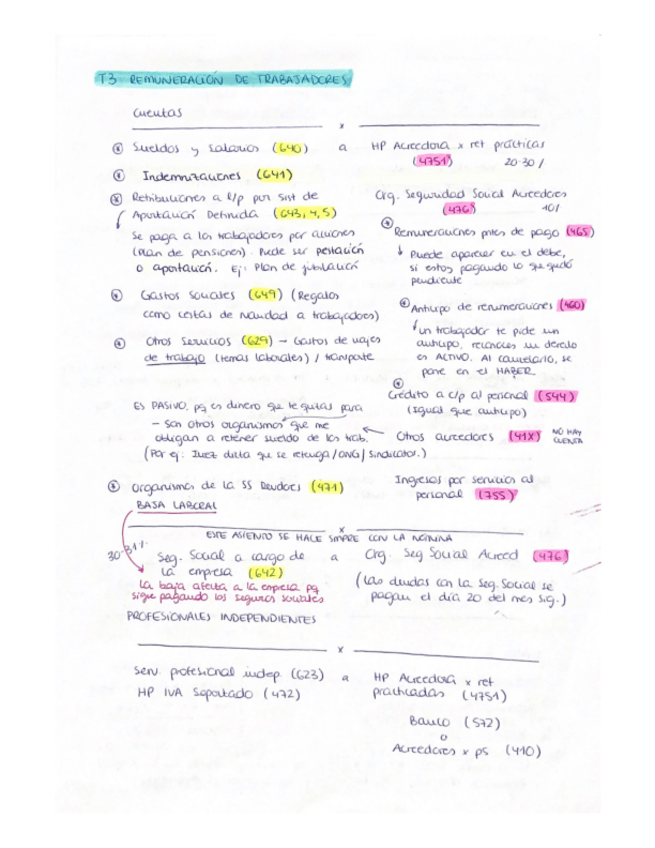 T3 REMUNERACIÓN DE TRABAJADORES
Cuentas
x
Sueldos y salarios (640) a HP Acreedora x ret prácticas
(4751) 20-30 /
Indemnizaciones (641)
Retribuciones a l/p por sist de Org. Seguridad Social Acreedores
Aportación Definida (643, 4, 5) (476) 10/
Se paga a los trabajadores por acciones Remuneraciones ptes de pago (465)
(Plan de pensiones). Puede ser prestación Puede aparecer en el debe,
o aportación. Ej: Plan de jubilación si estoy pagando lo que quedó
pendiente
Gastos Sociales (649) (Regalos Anticipo de renumeraciones (460)
como cestas de navidad a trabajadores) un trabajador te pide un
Otros Servicios (629) → Gastos de viajes anticipo, reconoces un derecho
de trabajo (temas laborales) / transporte es ACTIVO. Al cancelarlo, se
pone en el HABER.
Crédito a c/p al personal (544)
ES PASIVO, pq es dinero que te quitas para (Igual que anticipo)
- Son otros organismos que me
obligan a retener sueldo de los trab. ← Otros acreedores (41X) NO HAY
CUENTA
(Por ej: Juez dicta que se retenga / ONG / Sindicatos.)
Organismos de la SS Deudores (471) Ingresos por servicios al
personal (755)
BAJA LABORAL
x
ESTE ASIENTO SE HACE SMPRE CON LA NÓMINA
30-31%
Seg. Social a cargo de a Org. Seg Social Acreed (476)
la empresa (642)
La baja afecta a la empresa pq (las deudas con la Seg. Social se
sigue pagando los seguros sociales pagan el día 20 del mes sig.)
PROFESIONALES INDEPENDIENTES
x
Serv. profesional indep. (623) a HP Acreedora x ret
HP IVA Soportado (472) practicadas (4751)
Banco (572)
o
Acreedores x ps (410)